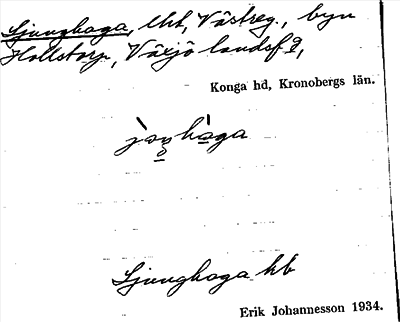 Ljunghaga, lht, Västreg., byn
Hollstorp, Växjö landsf
Konga hd, Kronobergs län.
haga
Ljunghaga hb
Erik Johannesson 1934.